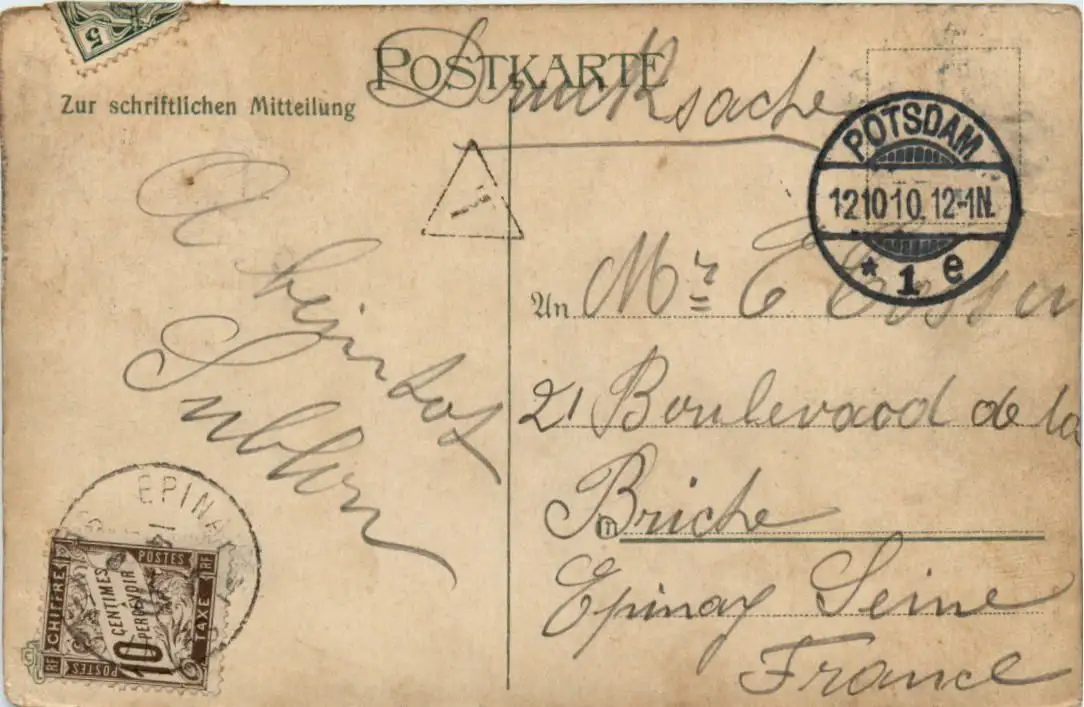 5
POSTKARTE
Drucksache
Zur schriftlichen Mitteilung
POTSDAM
12 10 10. 12-1N.
* 1 e
An Mr E
21 Boulevard de la
in Briche
Epinay Seine
France
A
EPINA
POSTES
RF
CHIFFRE
10 CENTIMES
PERCEVOIR
TAXE
RF
POSTES